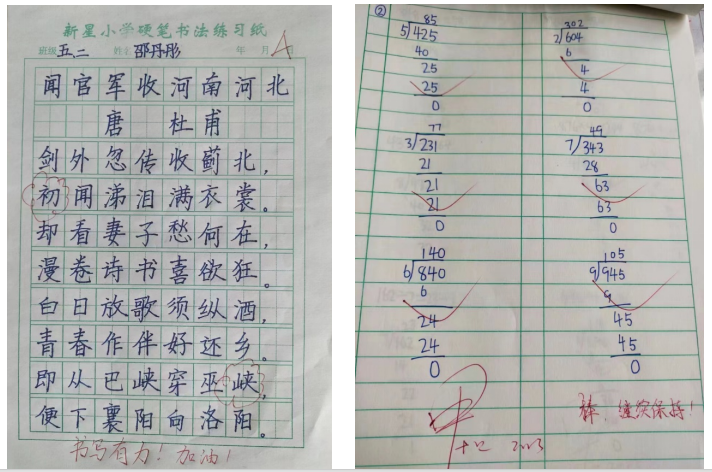 新星小学硬笔书法练习纸
班级 五、二 姓名 邵丹彤 年 月
A
闻官军收河南河北
唐 杜甫
剑外忽传收蓟北，
初闻涕泪满衣裳。
却看妻子愁何在，
漫卷诗书喜欲狂。
白日放歌须纵酒，
青春作伴好还乡。
即从巴峡穿巫峡，
便下襄阳向洛阳。
书写有力！加油！
②
85
5 425
40
25
25
0
302
2 604
6
4
4
0
77
3 231
21
21
21
0
49
7 343
28
63
63
0
140
6 840
6
24
24
0
105
9 945
9
45
45
0
棒，继续保持！